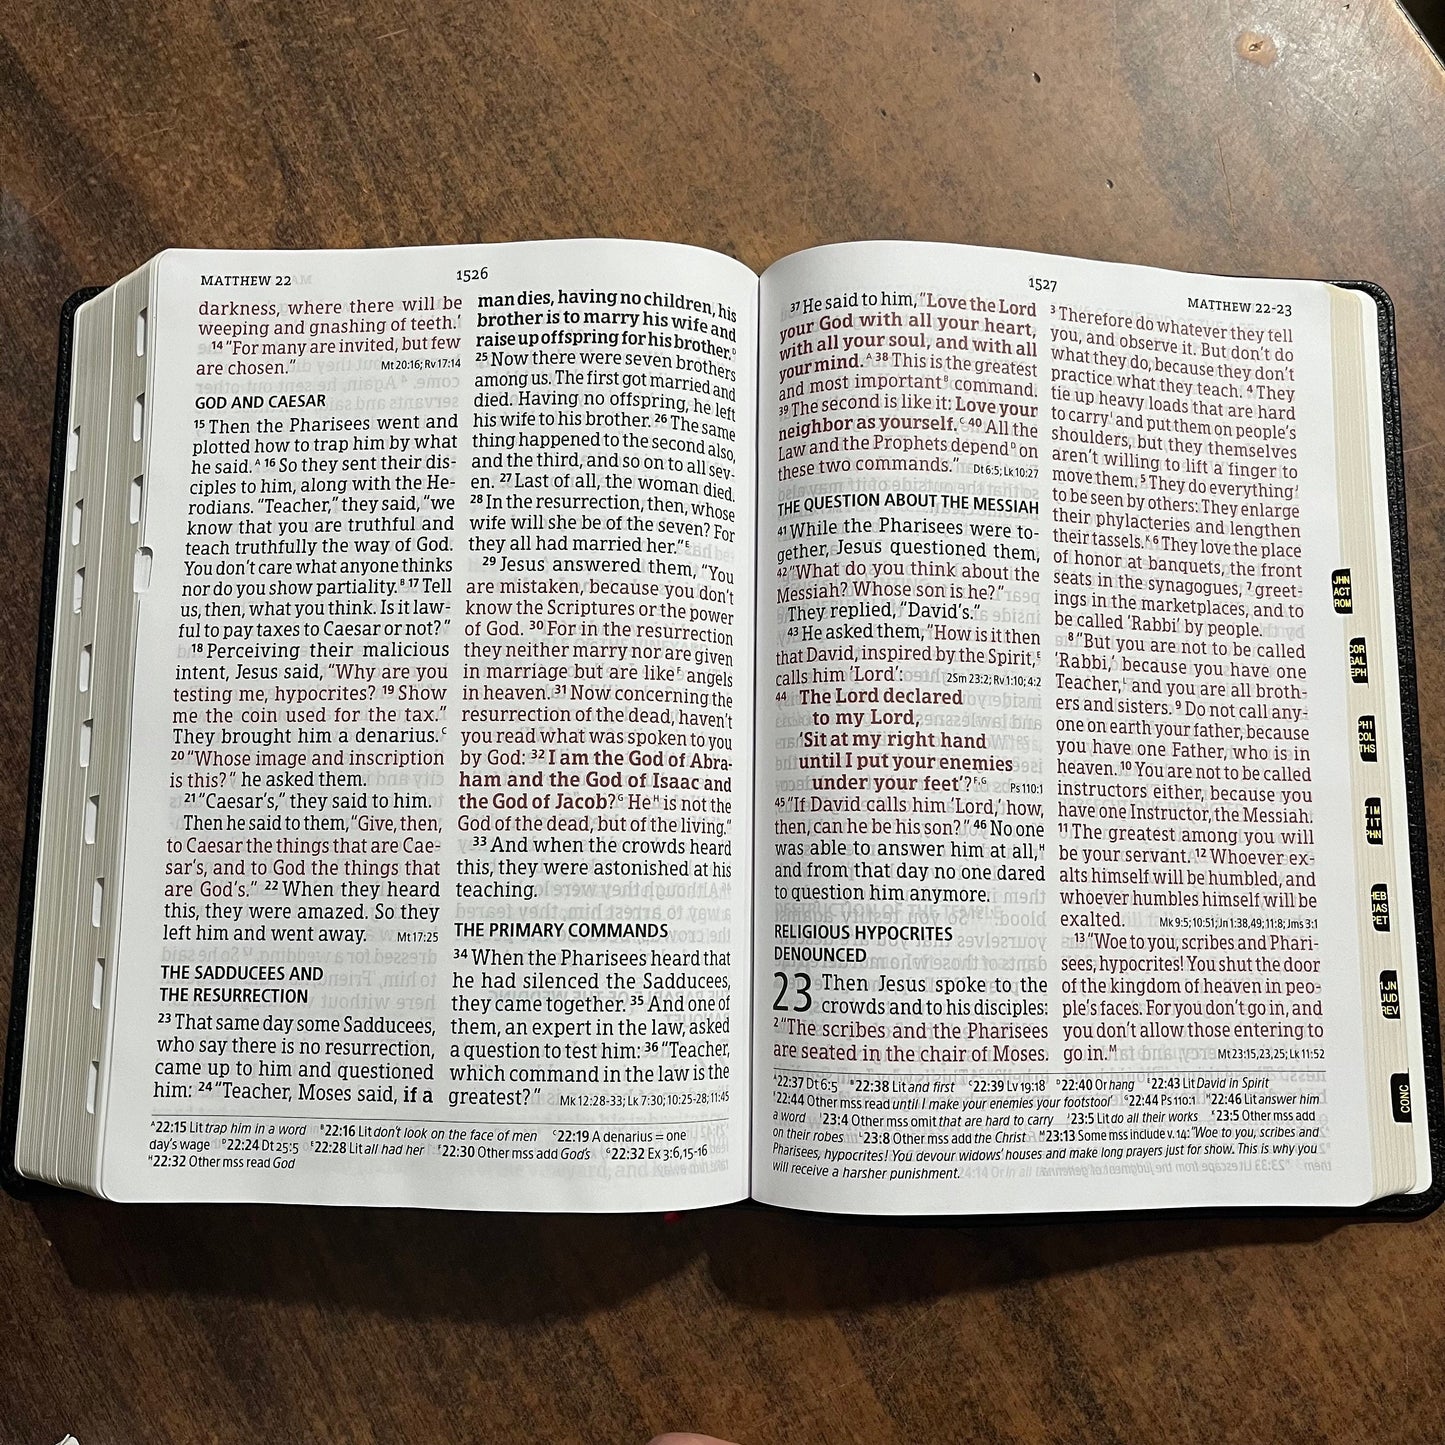 MATTHEW 22
1526
darkness, where there will be
weeping and gnashing of teeth.’
14 “For many are invited, but few
are chosen.” Mt 20:16; Rv 17:14
GOD AND CAESAR
15 Then the Pharisees went and
plotted how to trap him by what
he said. A 16 So they sent their dis-
ciples to him, along with the He-
rodians. “Teacher,” they said, “we
know that you are truthful and
teach truthfully the way of God.
You don’t care what anyone thinks
nor do you show partiality. B 17 Tell
us, then, what you think. Is it law-
ful to pay taxes to Caesar or not?”
18 Perceiving their malicious
intent, Jesus said, “Why are you
testing me, hypocrites? 19 Show
me the coin used for the tax.”
They brought him a denarius. C
20 “Whose image and inscription
is this?” he asked them.
21 “Caesar’s,” they said to him.
Then he said to them, “Give, then,
to Caesar the things that are Cae-
sar’s, and to God the things that
are God’s.” 22 When they heard
this, they were amazed. So they
left him and went away. Mt 17:25
THE SADDUCEES AND
THE RESURRECTION
23 That same day some Sadducees,
who say there is no resurrection,
came up to him and questioned
him: 24 “Teacher, Moses said, if a
man dies, having no children, his
brother is to marry his wife and
raise up offspring for his brother. D
25 Now there were seven brothers
among us. The first got married and
died. Having no offspring, he left
his wife to his brother. 26 The same
thing happened to the second also,
and the third, and so on to all sev-
en. 27 Last of all, the woman died.
28 In the resurrection, then, whose
wife will she be of the seven? For
they all had married her.” E
29 Jesus answered them, “You
are mistaken, because you don’t
know the Scriptures or the power
of God. 30 For in the resurrection
they neither marry nor are given
in marriage but are like F angels
in heaven. 31 Now concerning the
resurrection of the dead, haven’t
you read what was spoken to you
by God: 32 I am the God of Abra-
ham and the God of Isaac and
the God of Jacob? G He H is not the
God of the dead, but of the living.”
33 And when the crowds heard
this, they were astonished at his
teaching.
THE PRIMARY COMMANDS
34 When the Pharisees heard that
he had silenced the Sadducees,
they came together. 35 And one of
them, an expert in the law, asked
a question to test him: 36 “Teacher,
which command in the law is the
greatest?” Mk 12:28-33; Lk 7:30; 10:25-28; 11:45
A 22:15 Lit trap him in a word B 22:16 Lit don’t look on the face of men C 22:19 A denarius = one
day’s wage D 22:24 Dt 25:5 E 22:28 Lit all had her F 22:30 Other mss add God’s G 22:32 Ex 3:6,15-16
H 22:32 Other mss read God
1527
MATTHEW 22-23
37 He said to him, “Love the Lord
your God with all your heart,
with all your soul, and with all
your mind. A 38 This is the greatest
and most important B command.
39 The second is like it: Love your
neighbor as yourself. C 40 All the
Law and the Prophets depend D on
these two commands.” Dt 6:5; Lk 10:27
THE QUESTION ABOUT THE MESSIAH
41 While the Pharisees were to-
gether, Jesus questioned them,
42 “What do you think about the
Messiah? Whose son is he?”
They replied, “David’s.”
43 He asked them, “How is it then
that David, inspired by the Spirit, E
calls him ‘Lord’: 2Sm 23:2; Rv 1:10; 4:2
44 The Lord declared
to my Lord,
‘Sit at my right hand
until I put your enemies
under your feet’? F,G Ps 110:1
45 “If David calls him ‘Lord,’ how,
then, can he be his son?” 46 No one
was able to answer him at all, H
and from that day no one dared
to question him anymore.
RELIGIOUS HYPOCRITES
DENOUNCED
23 Then Jesus spoke to the
crowds and to his disciples:
2 “The scribes and the Pharisees
are seated in the chair of Moses.
3 Therefore do whatever they tell
you, and observe it. But don’t do
what they do, because they don’t
practice what they teach. 4 They
tie up heavy loads that are hard
to carry I and put them on people’s
shoulders, but they themselves
aren’t willing to lift a finger to
move them. 5 They do everything J
to be seen by others: They enlarge
their phylacteries and lengthen
their tassels. K 6 They love the place
of honor at banquets, the front
seats in the synagogues, 7 greet-
ings in the marketplaces, and to
be called ‘Rabbi’ by people.
8 “But you are not to be called
‘Rabbi,’ because you have one
Teacher, L and you are all broth-
ers and sisters. 9 Do not call any-
one on earth your father, because
you have one Father, who is in
heaven. 10 You are not to be called
instructors either, because you
have one Instructor, the Messiah.
11 The greatest among you will
be your servant. 12 Whoever ex-
alts himself will be humbled, and
whoever humbles himself will be
exalted. Mk 9:5; 10:51; Jn 1:38,49; 11:8; Jms 3:1
13 “Woe to you, scribes and Phari-
sees, hypocrites! You shut the door
of the kingdom of heaven in peo-
ple’s faces. For you don’t go in, and
you don’t allow those entering to
go in. M Mt 23:15,23,25; Lk 11:52
A 22:37 Dt 6:5 B 22:38 Lit and first C 22:39 Lv 19:18 D 22:40 Or hang E 22:43 Lit David in Spirit
F 22:44 Other mss read until I make your enemies your footstool’ G 22:44 Ps 110:1 H 22:46 Lit answer him
a word I 23:4 Other mss omit that are hard to carry J 23:5 Lit do all their works K 23:5 Other mss add
on their robes L 23:8 Other mss add the Christ M 23:13 Some mss include v. 14: “Woe to you, scribes and
Pharisees, hypocrites! You devour widows’ houses and make long prayers just for show. This is why you
will receive a harsher punishment.
JHN
ACT
ROM
COR
GAL
EPH
PHI
COL
THS
TIM
TIT
PHN
HEB
JAS
PET
1JN
JUD
REV
CONC